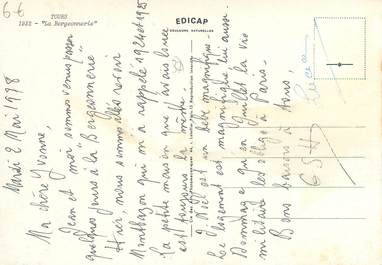 6-6
TOURS
1932 - "La Bergeonnerie"
EDICAP
DOULEURS NATURELLES
Mardi 2 Mai 1978
Ma chère Yvonne,
Jean et moi sommes venus passer
quelques jours à la Bergeonnerie
Hier, nous sommes allés revoir
Montbazon qui m'a rappelé 12 août 1925
La petite maison que j'avais louée
est toujours la même.
Noël est un bébé magnifique.
Le logement est magnifique lui aussi.
Dommage qu'en Juillet la vie
militaire les oblige à Paris.
Bons baisers à tous,